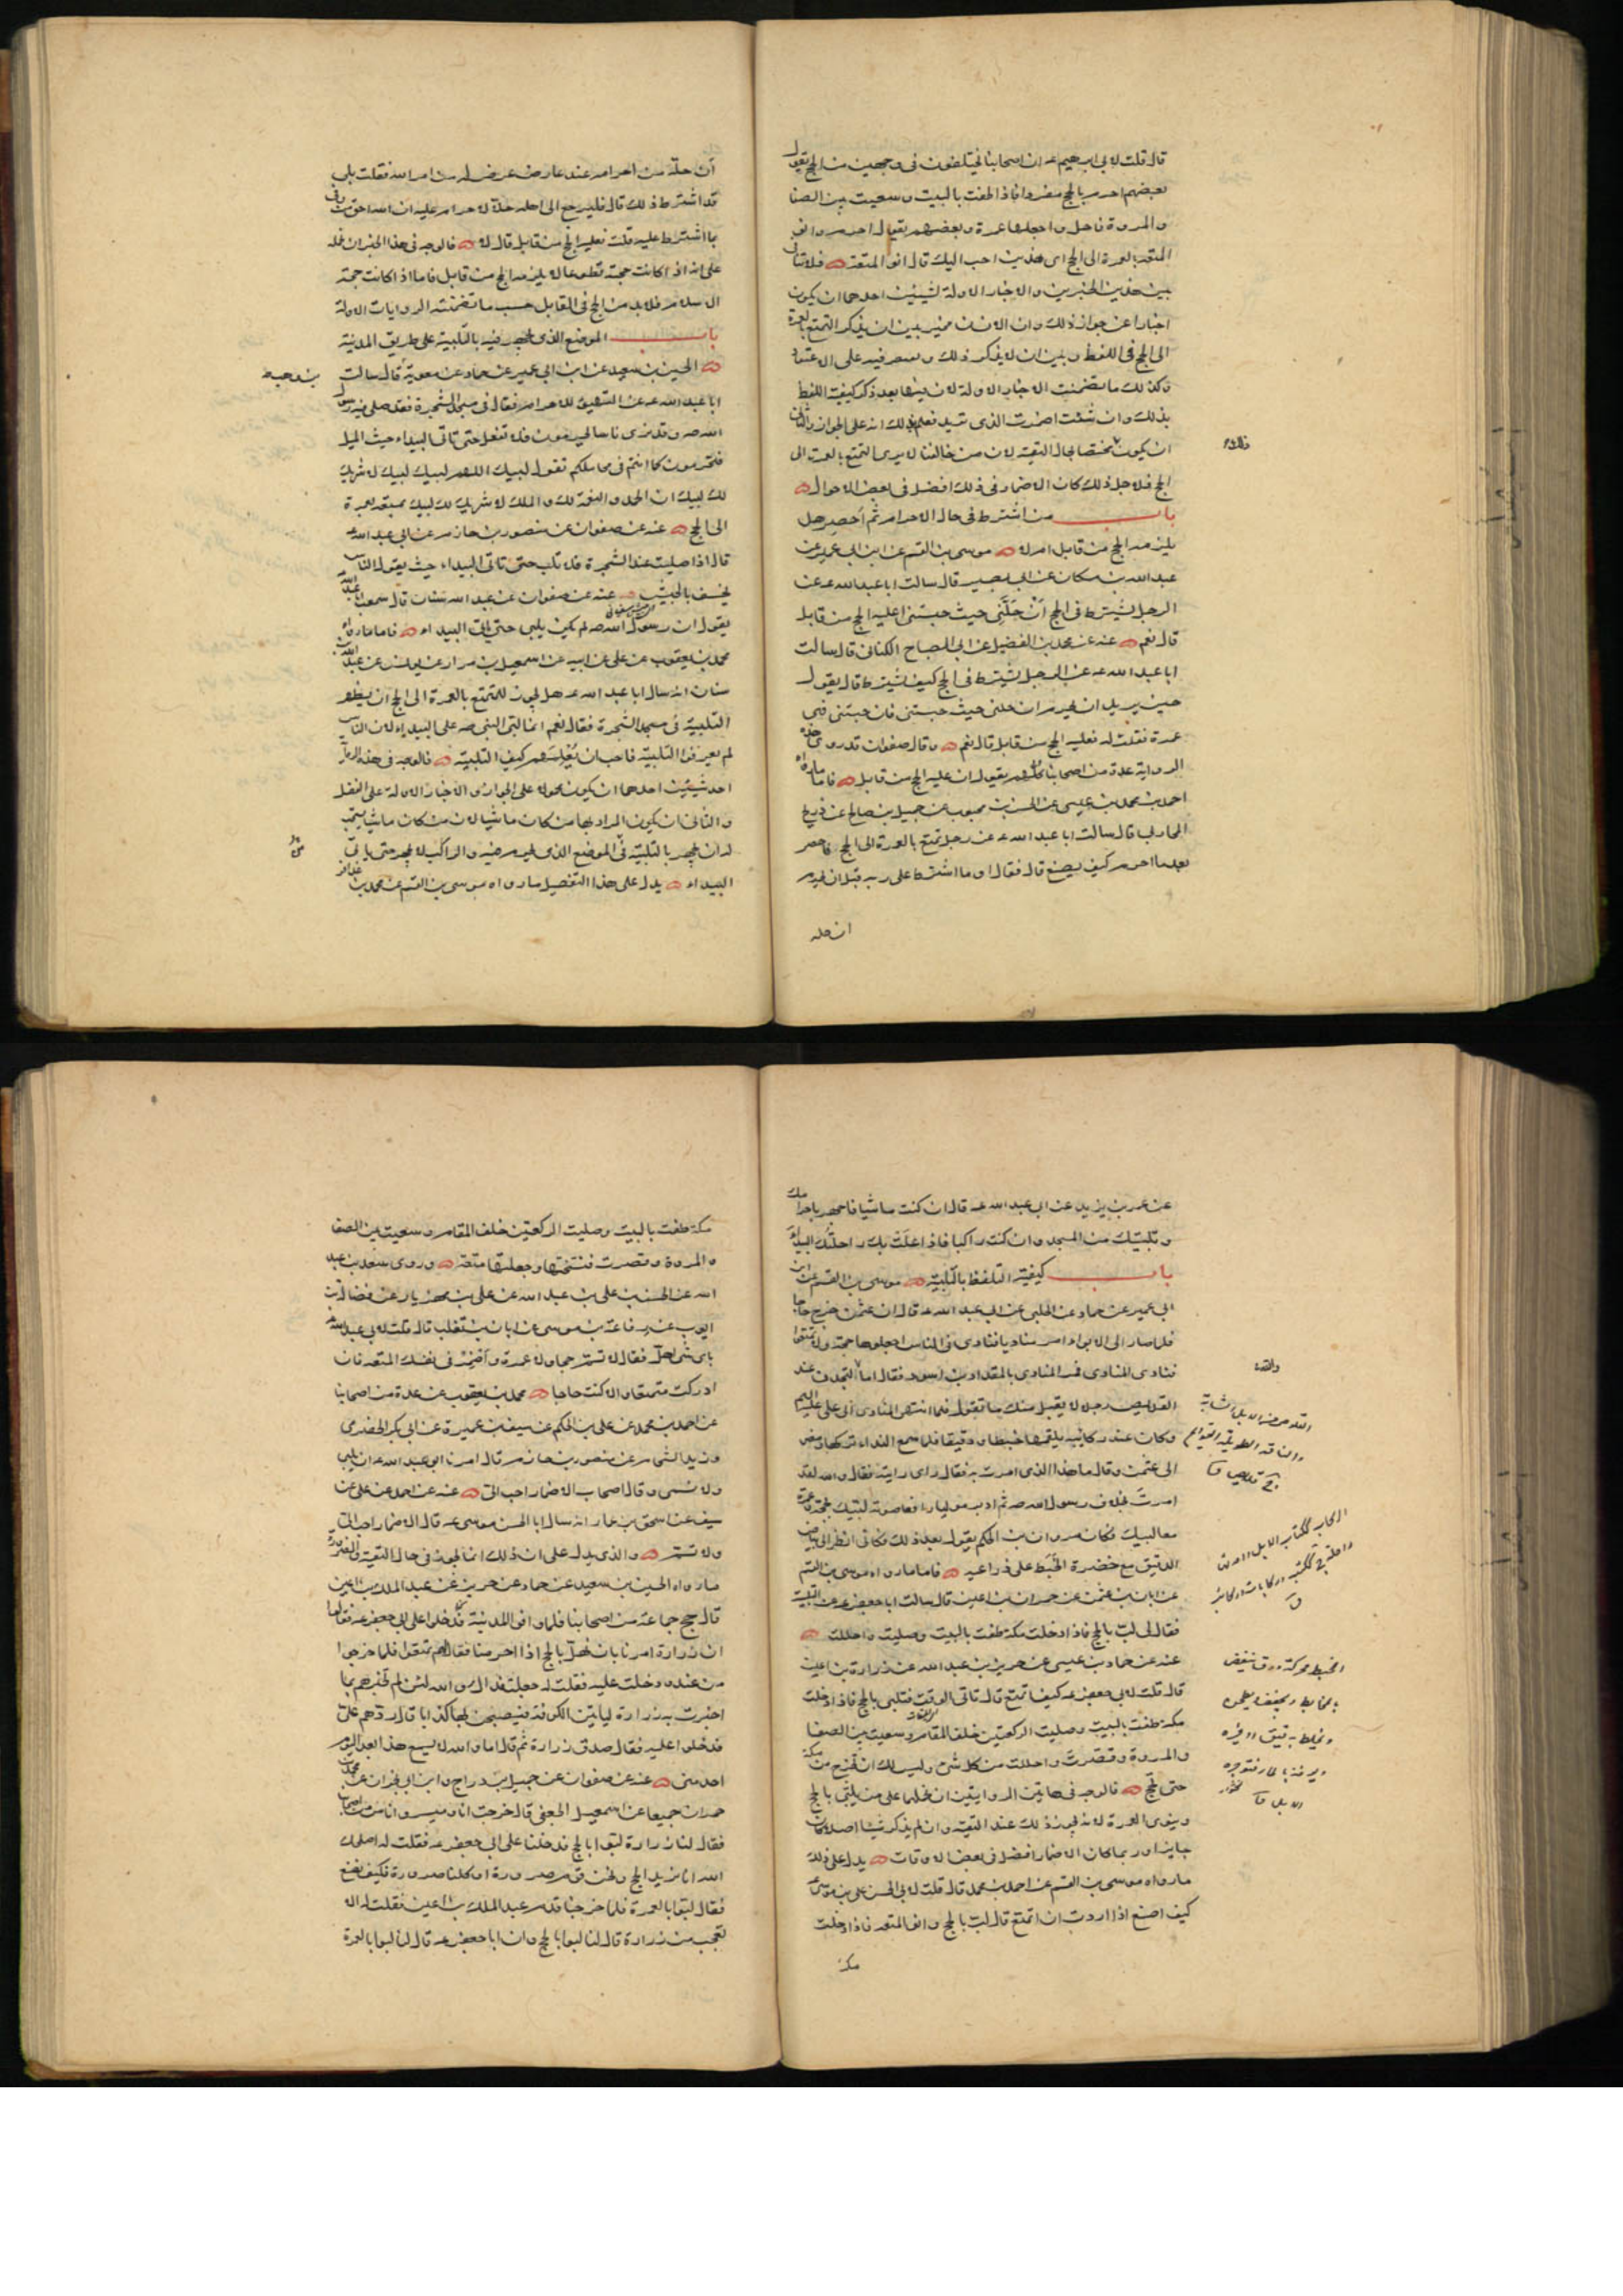 قال قلت لابي ابرهيم عه ان اصحابنا يختلفون فى وجهين من الحج يقول
بعضهم احرم بالحج مفردا فاذا طفت بالبيت وسعيت بين الصفا
والمروة فاحل واجعلها عمرة وبعضهم يقول احرم وانو
المتعة بالعمرة الى الحج اى هذين احب اليك قال انو المتعة فلا تنافى
بين هذين الخبرين والاخبار الاولة لشيئين احدهما ان يكون
اخبارا عن جواز ذلك وان الانسان مخير بين ان يذكر التمتع بالعمرة
الى الحج فى اللفظ وبين ان لا يذكر ذلك ويقتصر فيه على الاعتقاد
وكذلك ما تضمنت الاخبار الاولة لان فيها بعد ذكر كيفية اللفظ
بذلك وان شئت اضمرت الذى تريد فعلم بذلك انه على الجواز والثانى
ان يكون مختصا بحال التقية لان من خالفنا لا يرى التمتع بالعمرة الى
الحج فلاجل ذلك كان الاضمار فى ذلك افضل فى بعض الاحوال
باب من اشترط فى حال الاحرام ثم احصر هل
يلزمه الحج من قابل ام لا موسى بن القسم عن ابن ابى عمير عن
عبد الله بن مسكان عن ابى بصير قال سالت ابا عبد الله عه عن
الرجل يشترط فى الحج اَنْ حَلّنى حيث حبستنى اعليه الحج من قابل
قال نعم عنه عن محمد بن الفضيل عن ابى الصباح الكنانى قال سالت
ابا عبد الله عه عن الرجل يشترط فى الحج كيف يشترط قال يقول
حين يريد ان يحرم ان حلنى حيث حبستنى فان حبستنى فهى
عمرة فقلت له فعليه الحج من قابل قال نعم وقال صفوان قد روى هذه
الرواية عدة من اصحابنا كلهم يقول ان عليه الحج من قابل فاما ما رواه
احمد بن محمد بن عيسى عن الحسن بن محبوب عن جميل بن صالح عن ذريح
المحاربى قال سالت ابا عبد الله عه عن رجل تمتع بالعمرة الى الحج فاحصر
بعد ما احرم كيف يصنع قال فقال او ما اشترط على ربه قبل ان يحرم
ان حله
اَن حلّه من احرامه عند عارض عرض له من امر الله فقلت بلى
قد اشترط ذلك قال فليرجع الى اهله حلالا لا احرام عليه ان الله احق من وفى
بما اشترط عليه قلت فعليه الحج من قابل قال لا فالوجه فى هذا الخبر ان نحمله
على انه اذا كانت حجته تطوعا لا يلزمه الحج من قابل فاما اذا كانت حجة
الاسلام فلا بد من الحج فى القابل حسب ما تضمنته الروايات الاولة
باب الموضع الذى يجهر فيه بالتلبية على طريق المدينة
الحسين بن سعيد عن ابن ابى عمير عن حماد عن معوية قال سالت
ابا عبد الله عه عن التهيؤ للاحرام فقال فى مسجد الشجرة فقد صلى فيه رسول
الله صه وقد ترى ناسا يحرمون فلا تفعل حتى تاتى البيداء حيث الميل
فتحرمون كما انتم فى محاملكم تقول لبيك اللهم لبيك لبيك لا شريك
لك لبيك ان الحمد والنعمة لك والملك لا شريك لك لبيك بمتعة بعمرة
الى الحج عنه عن صفوان عن منصور بن حازم عن ابى عبد الله عه
قال اذا صليت عند الشجرة فلا تلب حتى تاتى البيداء حيث يقول الناس
يخسف بالجيش عنه عن صفوان عن عبد الله بن سنان قال سمعت ابا عبد الله
يقول ان رسول الله صه لم يكن يلبى حتى ياتى البيداء فاما ما رواه
محمد بن يعقوب عن على عن ابيه عن اسمعيل بن مرار عن يونس عن عبد الله بن
سنان انه سال ابا عبد الله عه هل يجوز للمتمتع بالعمرة الى الحج ان يظهر
التلبية فى مسجد الشجرة فقال نعم انما لبى النبى صه على البيداء لان الناس
لم يعرفوا التلبية فاحب ان يُعلّمهم كيف التلبية فالوجه فى هذه الرواية
احد شيئين احدهما ان يكون محمولا على الجواز والاخبار الاولة على الفضل
والثانى ان يكون المراد بها من كان ماشيا لان من كان ماشيا يستحب
له ان يجهر بالتلبية فى الموضع الذى يحرم فيه والراكب لا يجهر حتى ياتى
البيداء يدل على هذا التفصيل ما رواه موسى بن القسم عن محمد بن عذافر
عن عمر بن يزيد عن ابى عبد الله عه قال ان كنت ماشيا فاجهر باهلالك
وتلبيتك من المسجد وان كنت راكبا فاذا اعلَت بك راحلتُك البيداء
باب كيفية التلفظ بالتلبية موسى بن القسم عن ابن
ابى عمير عن حماد عن الحلبى عن ابى عبد الله عه قال ان عثمن خرج حاجا
فلما صار الى الابواء امر مناديا فنادى فى الناس اجعلوها حجة ولا تمتعوا
فنادى المنادى فمر المنادى بالمقداد بن اسود فقال اما لتجدن عند
القلايص رجلا لا يقبل منك ما تقول فلما انتهى المنادى الى على عليه السلم
وكان عند ركايبه يلقمها خبطا ودقيقا فلما سمع النداء تركها ومضى
الى عثمن وقال ما هذا الذى امرت به فقال راى رايته فقال والله لقد
امرتَ بخلاف رسول الله صه ثم ادبر موليا رافعا صوته لبيك بحجة وعمرة
معا لبيك وكان مروان بن الحكم يقول بعد ذلك فكانى انظر الى بياض
الدقيق مع خضرة الخَبَط على ذراعيه فاما ما رواه موسى بن القسم
عن ابان بن عثمن عن حمران بن اعين قال سالت ابا جعفر عه عن التلبية
فقال لى لب بالحج فاذا دخلت مكة طفت بالبيت وصليت واحللت
عنه عن حماد بن عيسى عن حريز بن عبد الله عن زرارة بن اعين
قال قلت لابى جعفر عه كيف اتمتع قال تاتى الوقت فتلبى بالحج فاذا دخلت
مكة طفت بالبيت وصليت الركعتين خلف المقام وسعيت بين الصفا
والمروة وقصّرتَ واحللت من كل شئ وليس لك ان تخرج من مكة
حتى تحج فالوجه فى هاتين الروايتين ان نحملها على من يلبّى بالحج
وينوى العمرة لانه يجوز ذلك عند التقية وان لم يذكر شيئا اصلا كان
جايزا وربما كان الاضمار افضل فى بعض الاوقات يدل على ذلك
ما رواه موسى بن القسم عن احمد بن محمد قال قلت لابى الحسن على بن موسى عه
كيف اصنع اذا اردت ان اتمتع قال لب بالحج وانو المتعة فاذا دخلت
مكة
والقعه
الخبط محركة ورق ينفض
بالمخابط ويجفف ويطحن
ويخلط بدقيق او غيره
مكة طفت بالبيت وصليت الركعتين خلف المقام وسعيت بين الصفا
والمروة وقصرت فنسختها وجعلتها متعة وروى سعد بن عبد
الله عن الحسن بن على بن عبد الله عن على بن مهزيار عن فضالة بن
ايوب عن رفاعة بن موسى عن ابان بن تغلب قال قلت لابى عبد الله عه
باى شئ اهلّ فقال لا تسمّ حجا ولا عمرة واَضمِرْ فى نفسك المتعة فان
ادركت متمتعا والا كنت حاجا محمد بن يعقوب عن عدة من اصحابنا
عن احمد بن محمد عن على بن الحكم عن سيف بن عميرة عن ابى بكر الحضرمى
وزيد الشحام عن منصور بن حازم قال امرنا ابو عبد الله عه ان نلبى
ولا نسمى وقال اصحاب الاضمار احب الى عنه عن احمد عن على عن
سيف عن اسحق بن عمار انه سال ابا الحسن موسى عه قال الاضمار احب الى
ولا تسم والذى يدل على ان ذلك انما يجوز فى حال التقية والضرورة
ما رواه الحسين بن سعيد عن حماد عن حريز عن عبد الملك بن اعين
قال حج جماعة من اصحابنا فلما وافوا المدينة فدخلوا على ابى جعفر عه فقالوا
ان زرارة امرنا بان نهلّ بالحج اذا احرمنا فقال لهم تمتعوا فلما خرجوا
من عنده دخلت عليه فقلت له جعلت فداك والله لئن لم تخبرهم بما
اخبرت به زرارة لياتين الكوفة فيصبحن بها كذابا قال ردهم علىّ
فدخلوا عليه فقال صدق زرارة ثم قال اما والله لا يسمع هذا بعد اليوم
احد منى عنه عن صفوان عن جميل بن دراج وابن ابى نجران عن محمد بن
حمران جميعا عن اسمعيل الجعفى قال خرجت انا وميسر واناس من اصحابنا
فقال لنا زرارة لبوا بالحج فدخلنا على ابى جعفر عه فقلت له اصلحك
الله انا نريد الحج ونحن قوم صرورة او كلنا صرورة فكيف نصنع
فقال لبوا بالعمرة فلما خرجنا قدم عبد الملك بن اعين فقلت له الا
تعجب من زرارة قال لنا لبوا بالحج وان ابا جعفر عه قال لنا لبوا بالعمرة